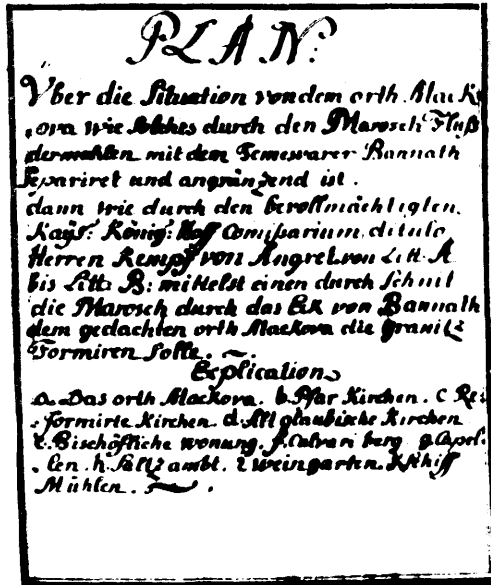 PLAN:
Yber die Situation von dem orth Mack
ova wie solches durch den Marosch Fluß
dermahlen mit dem Temeswarer Bannath
separiret und angränzend ist.
dann wie durch den bevollmächtigten.
Kays: König: Hoff Comisarium ditulo
Herren Kempf von Angret von Litt. A
bis Litt: B: mittelst einen durch schnit
die Marosch durch das Eck von Bannath
dem gedachten orth Mackova die granitz
Formiren solle.
Explication
a. Das orth Mackova. b. Pfar Kirchen. C Re:
formirte Kirchen. d. Alt glaubische Kirchen
e. Bischöfliche wonung. f. Calvari berg g. Capel:
len. h. Saltz ambt. i weingarten. K Schiff
Mühlen.